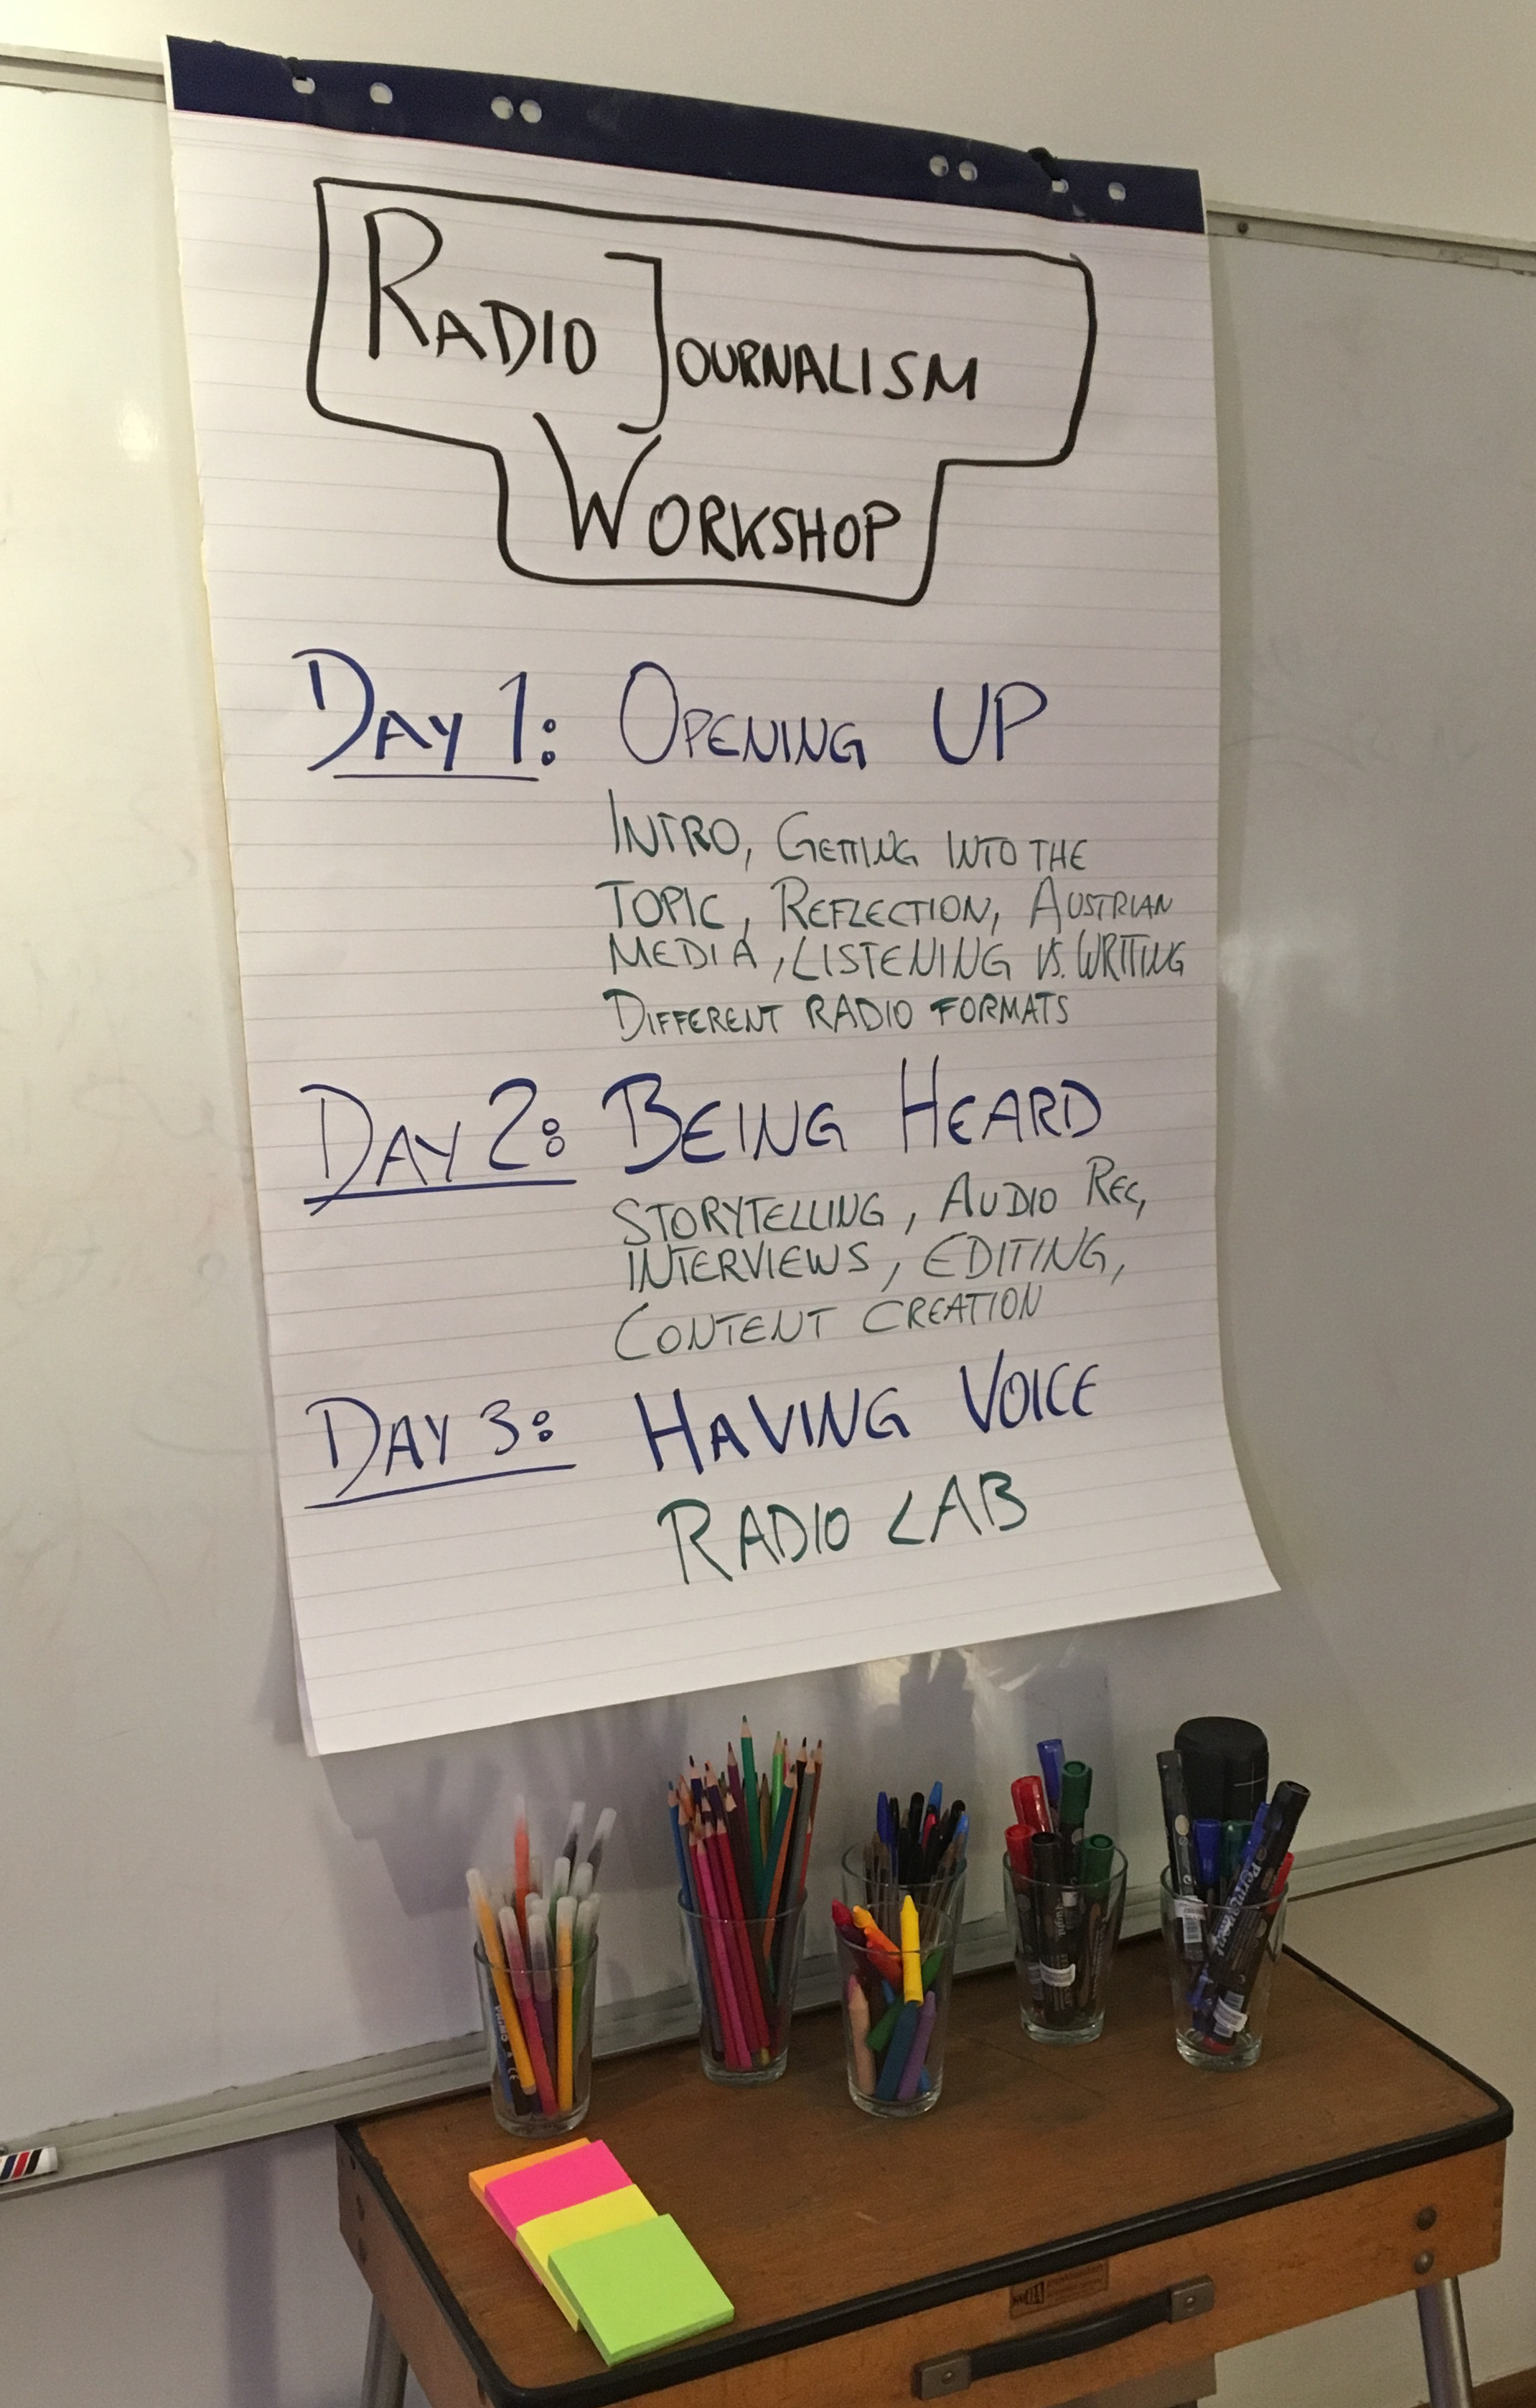 RADIO JOURNALISM
WORKSHOP
DAY 1: OPENING UP
INTRO, GETTING INTO THE
TOPIC, REFLECTION, AUSTRIAN
MEDIA, LISTENING VS. WRITING
DIFFERENT RADIO FORMATS
DAY 2: BEING HEARD
STORYTELLING, AUDIO REC,
INTERVIEWS, EDITING,
CONTENT CREATION
DAY 3: HAVING VOICE
RADIO LAB